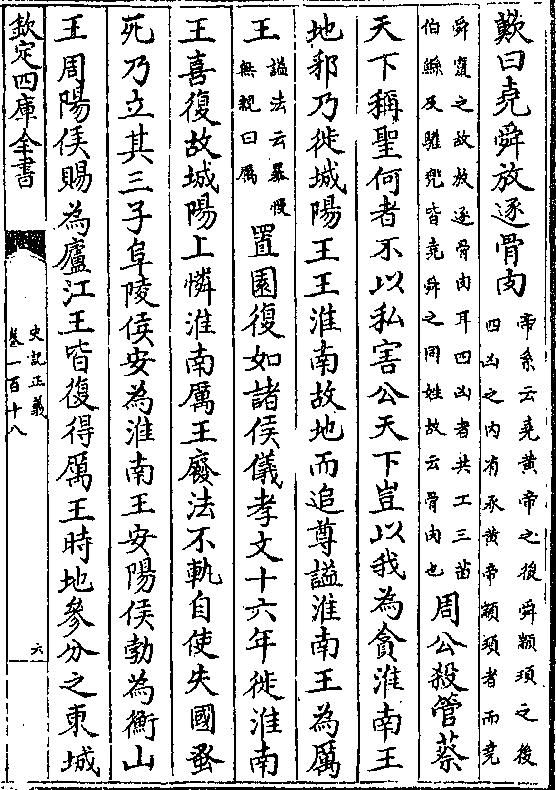 歎曰堯舜放逐骨肉
帝系云堯黄帝之後舜顓頊之後
四凶之内有承黄帝顓頊者而堯
舜竄之故放逐骨肉耳四凶者共工三苗
伯鯀及驩兜皆堯舜之同姓故云骨肉也
周公殺管蔡
天下稱聖何者不以私害公天下豈以我為貪淮南王
地邪乃徙城陽王王淮南故地而追尊諡淮南王為厲
王
諡法云暴慢
無親曰厲
置園復如諸侯儀孝文十六年徙淮南
王喜復故城陽上憐淮南厲王廢法不軌自使失國蚤
死乃立其三子阜陵侯安為淮南王安陽侯勃為衡山
王周陽侯賜為廬江王皆復得厲王時地參分之東城
欽定四庫全書
史記正義
卷一百十八
六